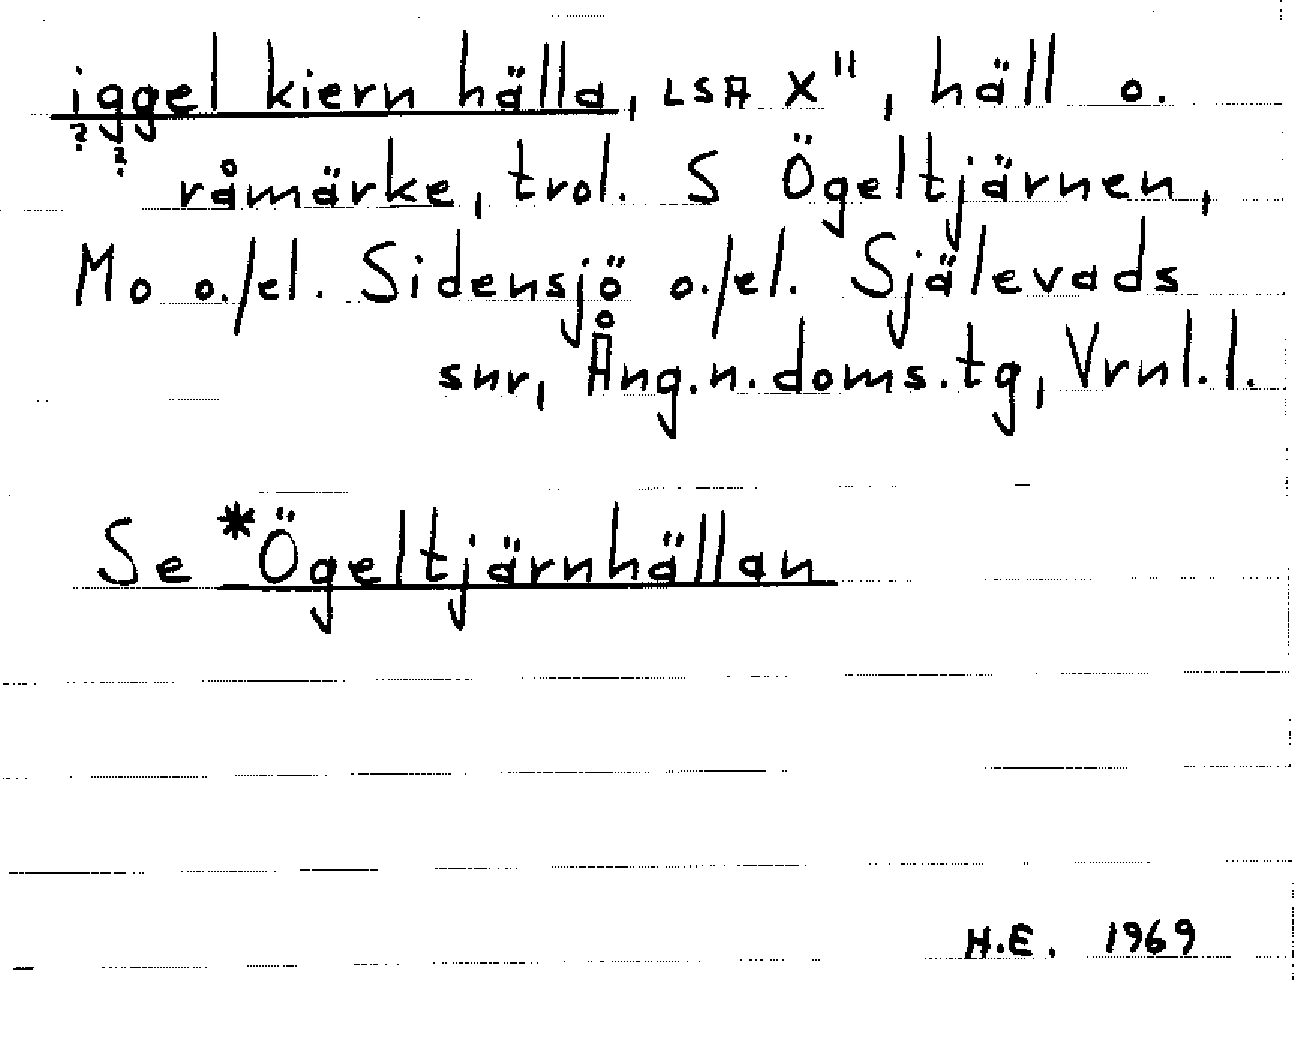 iggel kiern hälla, LSA X", häll o.
? ?
råmärke, trol. S Ögeltjärnen,
Mo o./el. Sidensjö o./el. Själevads
snr, Ång.n.doms.tg, Vrnl.l.
Se *Ögeltjärnhällan
H.E. 1969